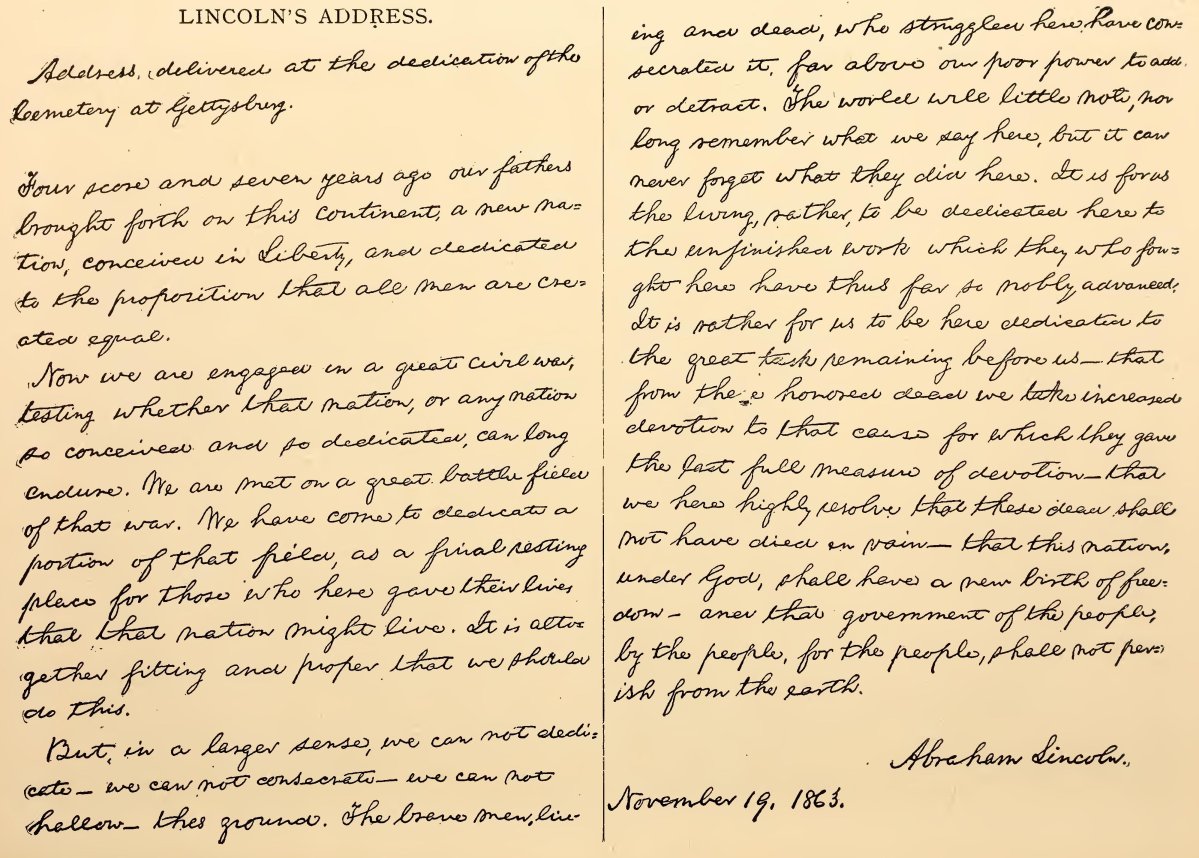 LINCOLN'S ADDRESS.
Address, delivered at the dedication of the
Cemetery at Gettysburg.
Four score and seven years ago our fathers
brought forth on this continent, a new na=
tion, conceived in Liberty, and dedicated
to the proposition that all men are cre=
ated equal.
Now we are engaged in a great civil war,
testing whether that nation, or any nation
so conceived and so dedicated, can long
endure. We are met on a great battle field
of that war. We have come to dedicate a
portion of that field, as a final resting
place for those who here gave their lives
that that nation might live. It is alto=
gether fitting and proper that we should
do this.
But, in a larger sense, we can not dedi=
cate— we can not consecrate— we can not
hallow— this ground. The brave men, liv=
ing and dead, who struggled here have con=
secrated it, far above our poor power to add
or detract. The world will little note, nor
long remember what we say here, but it can
never forget what they did here. It is for us
the living, rather, to be dedicated here to
the unfinished work which they who fou=
ght here have thus far so nobly advanced.
It is rather for us to be here dedicated to
the great task remaining before us— that
from these honored dead we take increased
devotion to that cause for which they gave
the last full measure of devotion— that
we here highly resolve that these dead shall
not have died in vain— that this nation,
under God, shall have a new birth of free=
dom— and that government of the people,
by the people, for the people, shall not per=
ish from the earth.
Abraham Lincoln.
November 19, 1863.